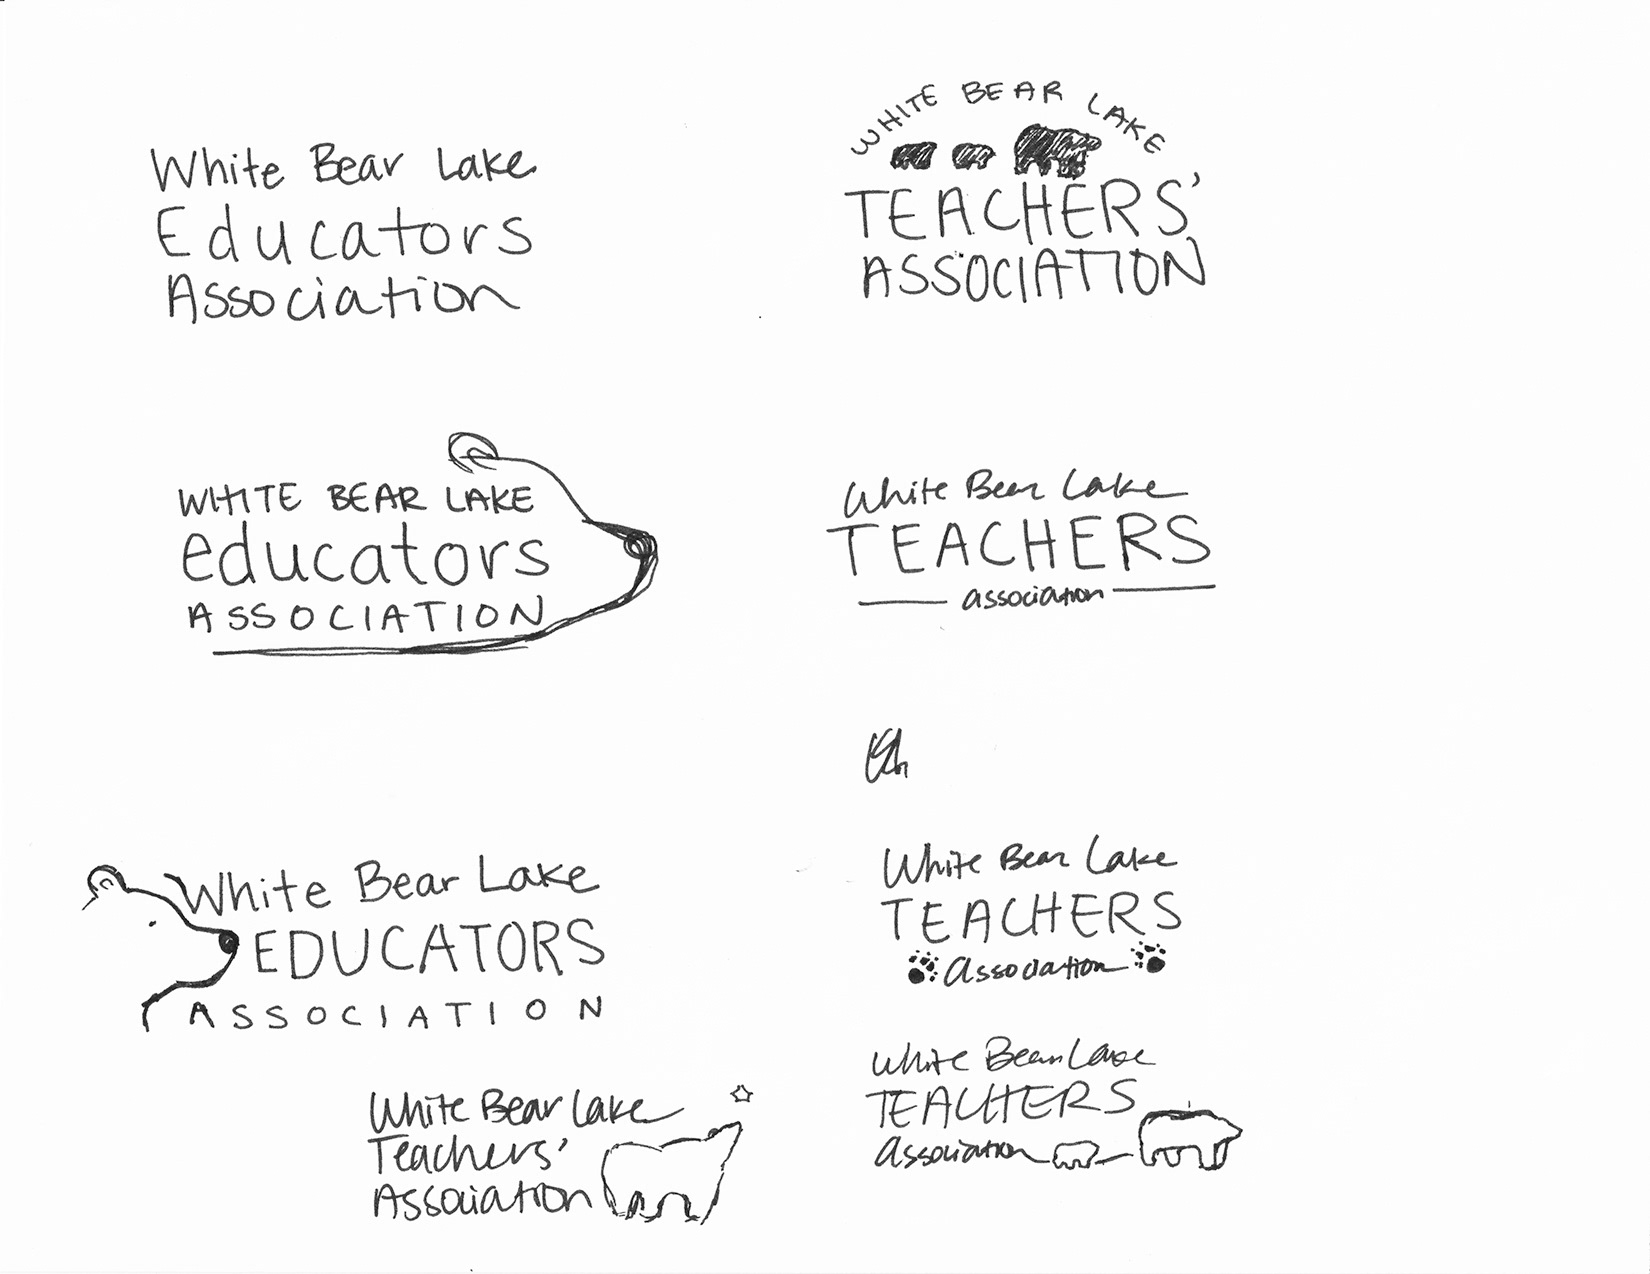 White Bear Lake
Educators
Association
WHITE BEAR LAKE
TEACHERS'
ASSOCIATION
WHITE BEAR LAKE
educators
ASSOCIATION
White Bear Lake
TEACHERS
association
White Bear Lake
EDUCATORS
ASSOCIATION
White Bear Lake
TEACHERS
Association
White Bear Lake
Teachers'
Association
White Bear Lake
TEACHERS
Association